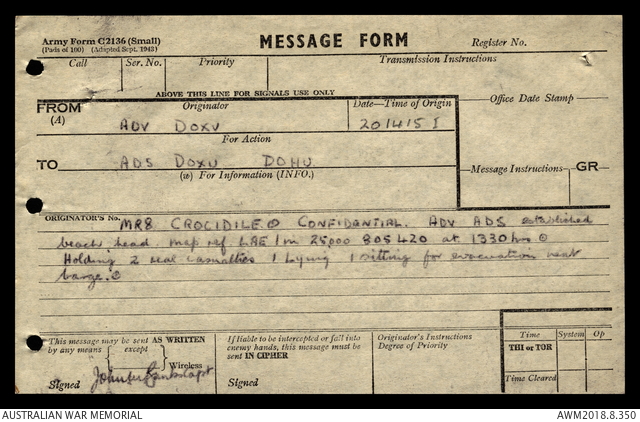 Army Form C2136 (Small)
(Pads of 100) (Adapted Sept. 1943)
MESSAGE FORM
Register No.
Call Ser. No. Priority Transmission Instructions
ABOVE THIS LINE FOR SIGNALS USE ONLY
FROM Originator Date—Time of Origin Office Date Stamp
(A) ADV DOXU 201415 I
For Action
TO ADS DOXU DOHU
(W) For Information (INFO.) Message Instructions GR
ORIGINATOR'S No. MR8 CROCIDILE CONFIDENTIAL. ADV ADS established
beach head map ref LAE 1 m 25000 805420 at 1330 hrs
Holding 2 real casualties 1 Lying 1 sitting for evacuation next
barge.
This message may be sent AS WRITTEN
by any means except Wireless
Signed
If liable to be intercepted or fall into
enemy hands, this message must be
sent IN CIPHER
Signed
Originator's Instructions
Degree of Priority
Time System Op
THI or TOR
Time Cleared
AUSTRALIAN WAR MEMORIAL AWM2018.8.350